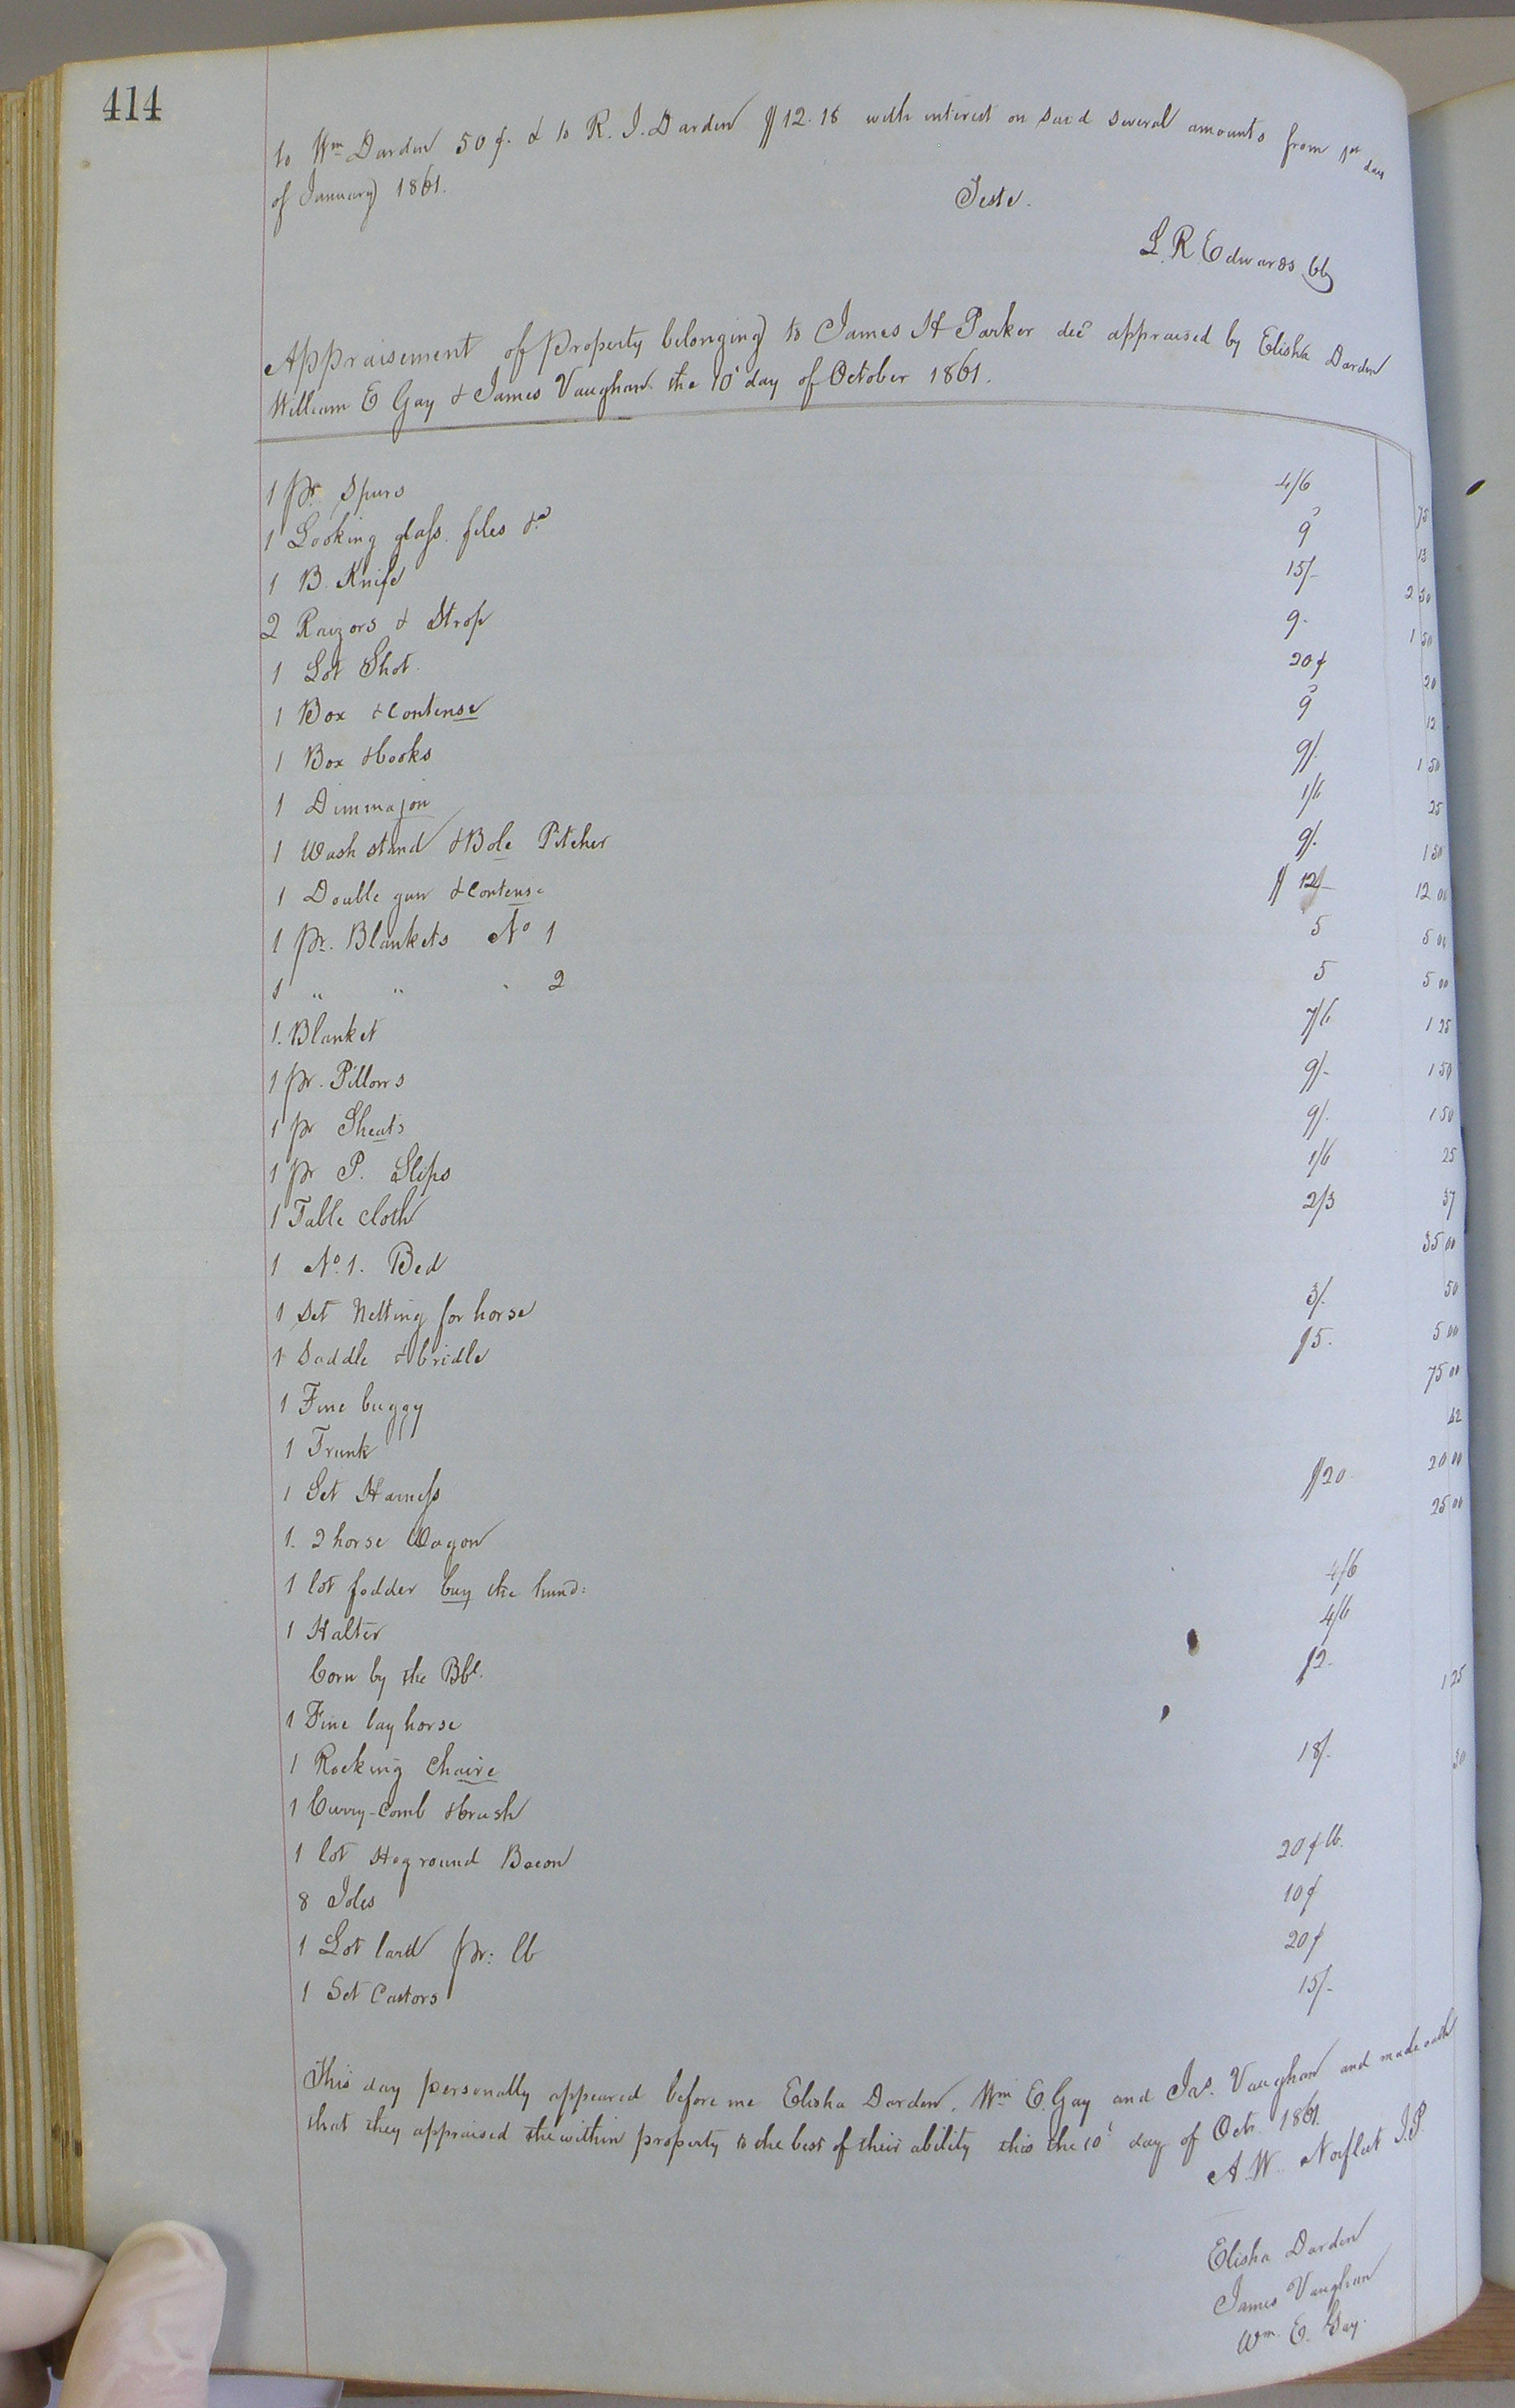 414
to Wm Darden 50 ¢. & to R. J. Darden $12.18 with interest on said several amounts from 1st day
of January 1861.
Teste.
L. R. Edwards Clk
Appraisement of Property belonging to James H Parker decd appraised by Elisha Darden
William E Gay & James Vaughan the 10th day of October 1861.
1 pr. Spurs 4/6 75
1 Looking glass files &c 9d 13
1 B. Knife 15/- 2 50
2 Raizors & Strop 9. 1 50
1 Lot Shot 20¢ 20
1 Box & Contense 9d 12
1 Box & books 9/. 1 50
1 Dimmajon 1/6 25
1 Wash stand & Bole Pitcher 9/. 1 50
1 Double gun & Contense $12/- 12 00
1 pr. Blankets No 1 5 5 00
1 " " " 2 5 5 00
1. Blanket 7/6 1 25
1 pr. Pillows 9/- 1 50
1 pr Sheats 9/. 1 50
1 pr P. Slips 1/6 25
1 Table cloth 2/3 37
1 No. 1. Bed 35 00
1 Set Netting for horse 3/. 50
1 Saddle & bridle $5. 5 00
1 Fine buggy 75 00
1 Trunk 42
1 Set Harness $20- 20 00
1. 2 horse Wagon 25 00
1 lot fodder buy the hund: 4/6
1 Halter 4/6
Corn by the Bbl. $2-
1 Fine bay horse 125
1 Rocking Chaire 18/.
1 Curry-Comb & brush 50
1 lot Hog round Bacon 20¢ lb.
8 Joles 10¢
1 Lot lard pr: lb 20¢
1 Set Castors 15/-
This day personally appeared before me Elisha Darden, Wm E. Gay and Jas. Vaughan and made oath
that they appraised the within property to the best of their ability this the 10th day of Octr. 1861.
A. W. Norfleet J.P.
Elisha Darden
James Vaughan
Wm. E. Gay.